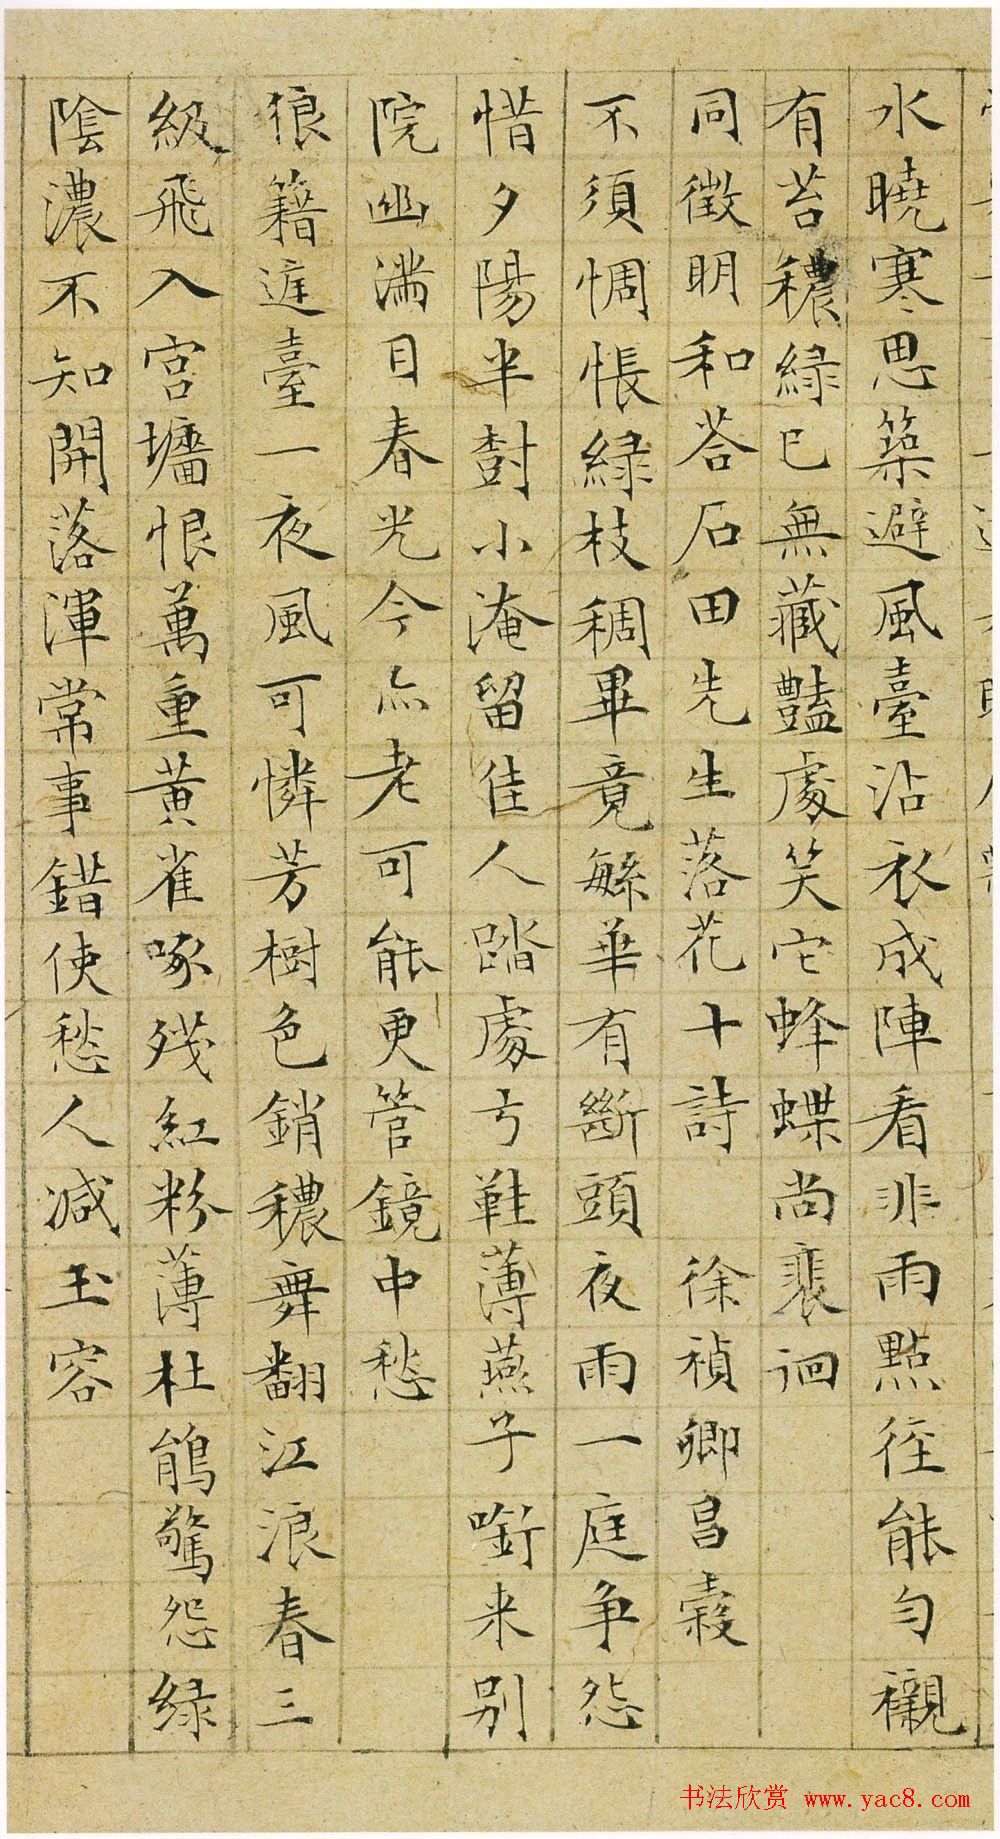 水曉寒思築避風臺沾衣成陣看非雨點徑能勻襯
有苔穠綠已無藏豔處笑它蜂蝶尚裴迴
同徵明和荅石田先生落花十詩 徐禎卿昌穀
不須惆悵綠枝稠畢竟繁華有斷頭夜雨一庭爭怨
惜夕陽半樹小淹留佳人踏處弓鞋薄燕子啣來別
院幽滿目春光今亦老可能更管鏡中愁
狼籍遅臺一夜風可憐芳樹色銷穠舞翻江浪春三
級飛入宮墻恨萬重黃雀啄殘紅粉薄杜鵑驚怨綠
陰濃不知開落渾常事錯使愁人減玉容
书法欣赏 www.yac8.com